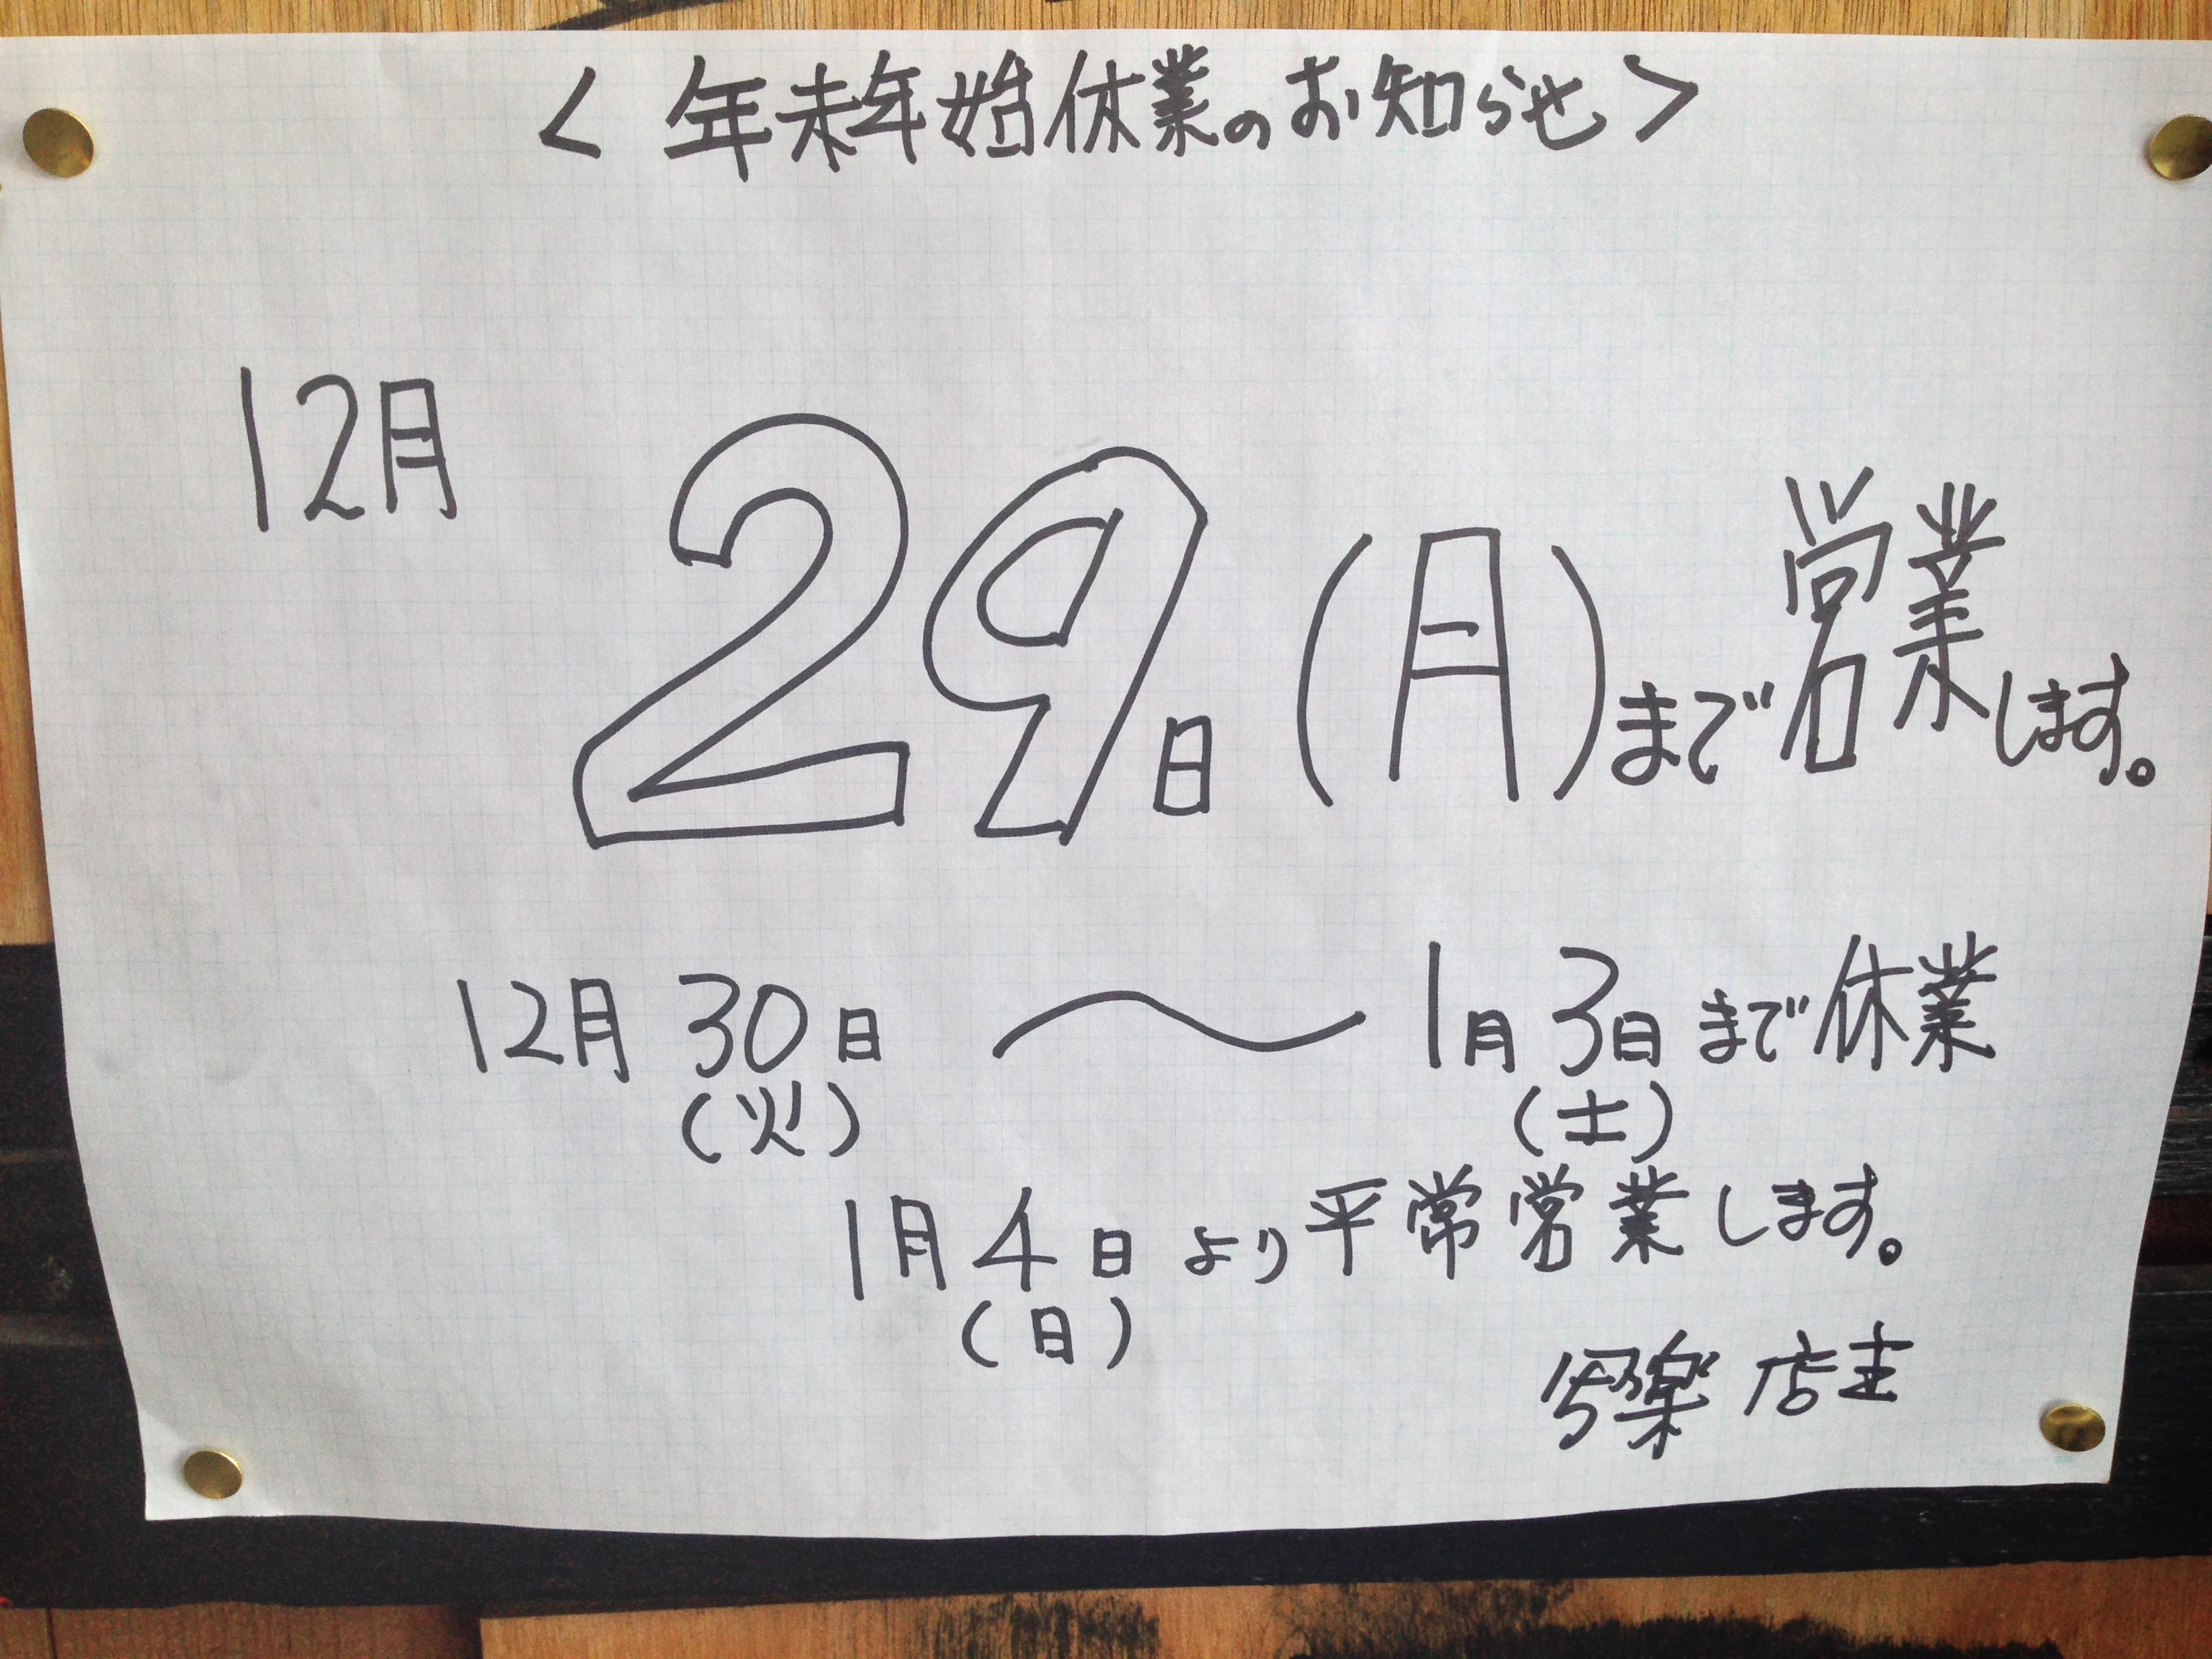 <年末年始休業のお知らせ>
12月
29日(月)まで営業します。
12月30日〜1月3日まで休業
(火) (土)
1月4日より平常営業します。
(日)
店主